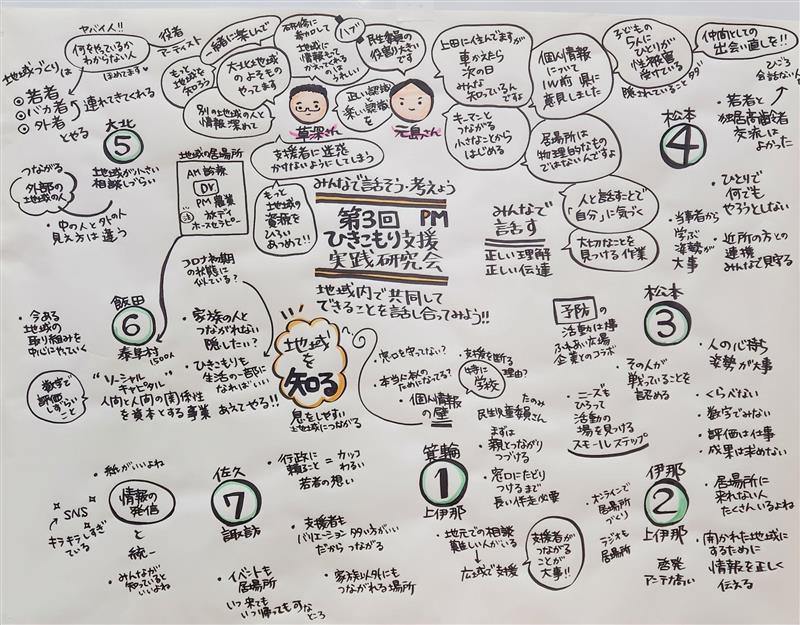 みんなで話そう・考えよう
第3回 PM
ひきこもり支援
実践研究会
地域内で共同して
できることを話し合ってみよう!!
ヤバイ人!!
何をやっているか
わからない人
ほめてます
地域づくりは
若者
バカ者
外者
とやる
連れてきてくれる
役者
アーティスト
もっと
地域を
知ろう
一緒に楽しんで
大北地域
のよそもの
やってます
別の地域の人と
情報 深めて
研修に
参加して
地域に
情報もって
かえってくれる
のは
うれしい
ハブ
民生委員の
役割り大きい
です
正しい認識
楽しい認識
を
草深さん
元島さん
支援者に迷惑
かけないようにしてしまう
もっと
地域の
資源を
ひろい
あつめて!!
上田に住んでますが
車かえたら
次の日
みんな
知っているんですよ
キーマンと
つながる
小さなことから
はじめる
個人情報
について
1W前 県に
意見しました
居場所は
物理的なもの
ではないんですよ
子どもの
5人に
ひとりが
性被害
受けている
隠されていること
仲間としての
出会い直しを!!
ひごろ
会話ない人
みんなで
話す
正しい理解
正しい伝達
人と話すことで
「自分」に気づく
大切なことを
見つける作業
大北
5
地域が小さい
相談しづらい
つながる
外部の
地域の人
・中の人と外の人
見え方は違う
地域の居場所
AM 診療
DV
PM 農業
放デイ
ホースセラピー
松本
4
・若者と
独居高齢者
交流は
よかった
・ひとりで
何でも
やろうとしない
・当事者から
学ぶ
姿勢が
大事
・近所の方との
連携
みんなで見守る
飯田
6
泰阜村
1500人
・今ある
地域の
取り組みを
中心にやっていく
数字で
評価
しづらい
こと
"ソーシャル
キャピタル"
人間と人間の関係性
を資本とする事業
コロナ初期
の状態に
似ている?
・家族の人と
つながれない
隠したい?
・ひきこもりも
生活の一部に
なればいい
あえてやる!!
地域
を
知る
息をしやすい
地域につながる
・窓口を守ってない?
・本当に本人の
ためになってる?
・個人情報
の壁
支援を断る
理由?
特に
学校
松本
3
予防の
活動は大事
ふれあい広場
企業とのコラボ
・ニーズも
ひろって
活動の
場を見つけ
スモールステップ
・その人が
戦っていることを
認める
・人の心持ち
姿勢が大事
・くらべない
・数字でみない
・評価は仕事
・成果は求めない
箕輪
1
上伊那
たのみ
民生児童委員さん
まずは
・親とつながり
つづける
・窓口にたどり
つけるまで
長い伴走必要
・地元での相談
難しい人がいる
広域で支援
支援者が
つながる
ことが
大事!!
伊那
2
上伊那
・オンラインで
居場所
づくり
・ラジオも
居場所
啓発
アンテナ高い
・居場所に
来れない人
たくさんいるよね
・開かれた地域に
するために
情報を正しく
伝える
佐久
7
諏訪
・行政に
頼ること = カッコ
わるい
若者の想い
・支援者も
バリエーション 多い方がいい
だから つながる
・イベントも
居場所
いつ来ても
いつ帰っても 可な
ところ
・家族以外にも
つながれる場所
・紙がいいよね
情報の
発信
と
統一
・SNS
キラキラしすぎ
ている
・みんなが
知っていると
いいよね